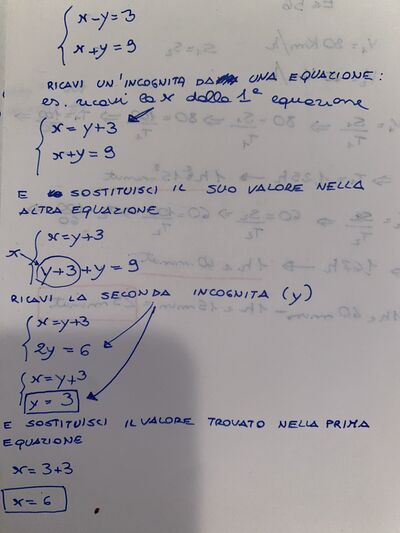 x-y=3
x+y=9
RICAVI UN'INCOGNITA DA UNA EQUAZIONE:
es. ricavi la x dalla 1ª equazione
x=y+3
x+y=9
E SOSTITUISCI IL SUO VALORE NELLA
ALTRA EQUAZIONE
x=y+3
x
y+3+y=9
RICAVI LA SECONDA INCOGNITA (y)
x=y+3
2y=6
x=y+3
y=3
E SOSTITUISCI IL VALORE TROVATO NELLA PRIMA
EQUAZIONE
x=3+3
x=6